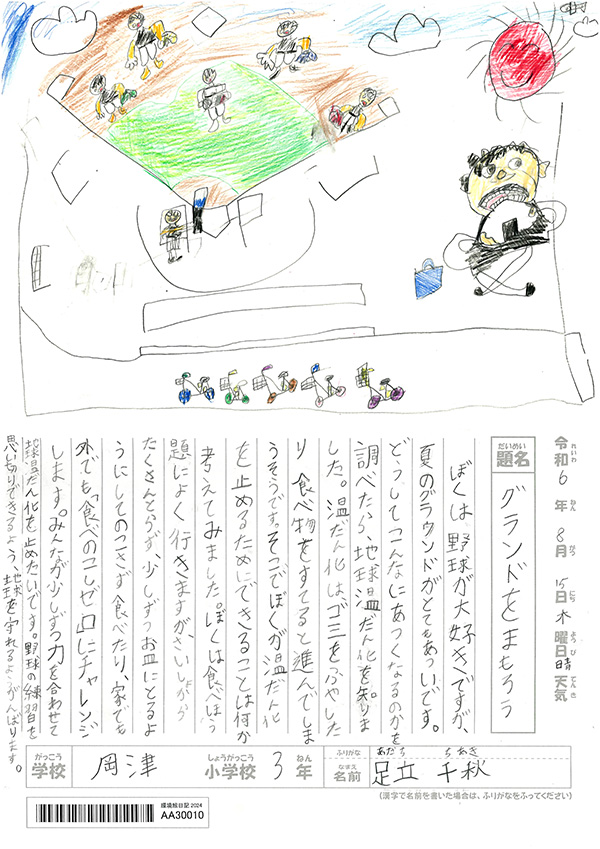 れいわ ねん がつ にち ようび てんき
令和6年8月15日木曜日晴天気
だいめい
題名 グランドをまもろう
ぼくは、野球が大好きですが、
夏のグラウンドがとてもあついです。
どうしてこんなにあつくなるのかを
調べたら、地球温だん化を知りま
した。温だん化はゴミをふやした
り食べ物をすてると進んでしま
うそうです。そこでぼくが温だん化
を止めるためにできることは何か
考えてみました。ぼくは食べほう
題によく行きますが、さいしょから
たくさんとらず、少しずつお皿にとるよ
うにしてのこさず食べたり、家でも
外でも「食べのこしゼロ」にチャレンジ
します。みんなが少しずつ力を合わせて
地球温だん化を止めたいです。野球の練習を
思い切りできるよう、地球を守れるようがんばります。
がっこう しょうがっこう ねん ふりがな あだち ちあき
学校 岡津 小学校 3年 なまえ 名前 足立 千秋
(漢字で名前を書いた場合は、ふりがなをふってください)
環境絵日記2024
AA30010